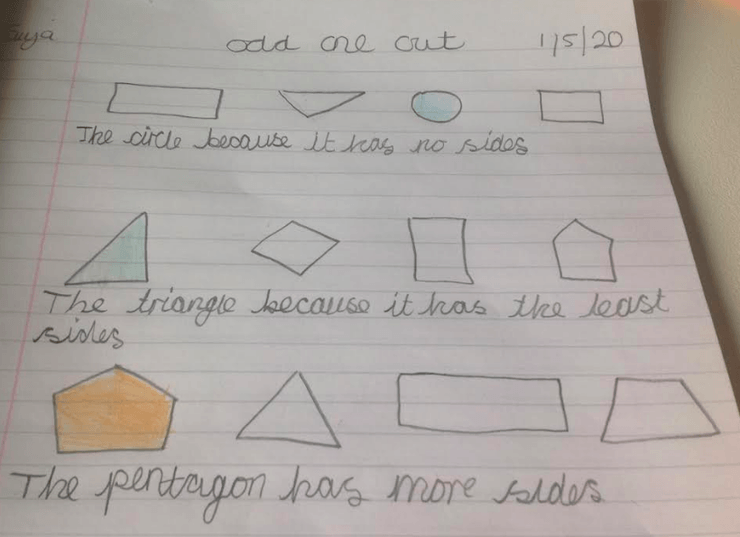 odd one out 1/5/20
The circle because it has no sides
The triangle because it has the least
sides
The pentagon has more sides